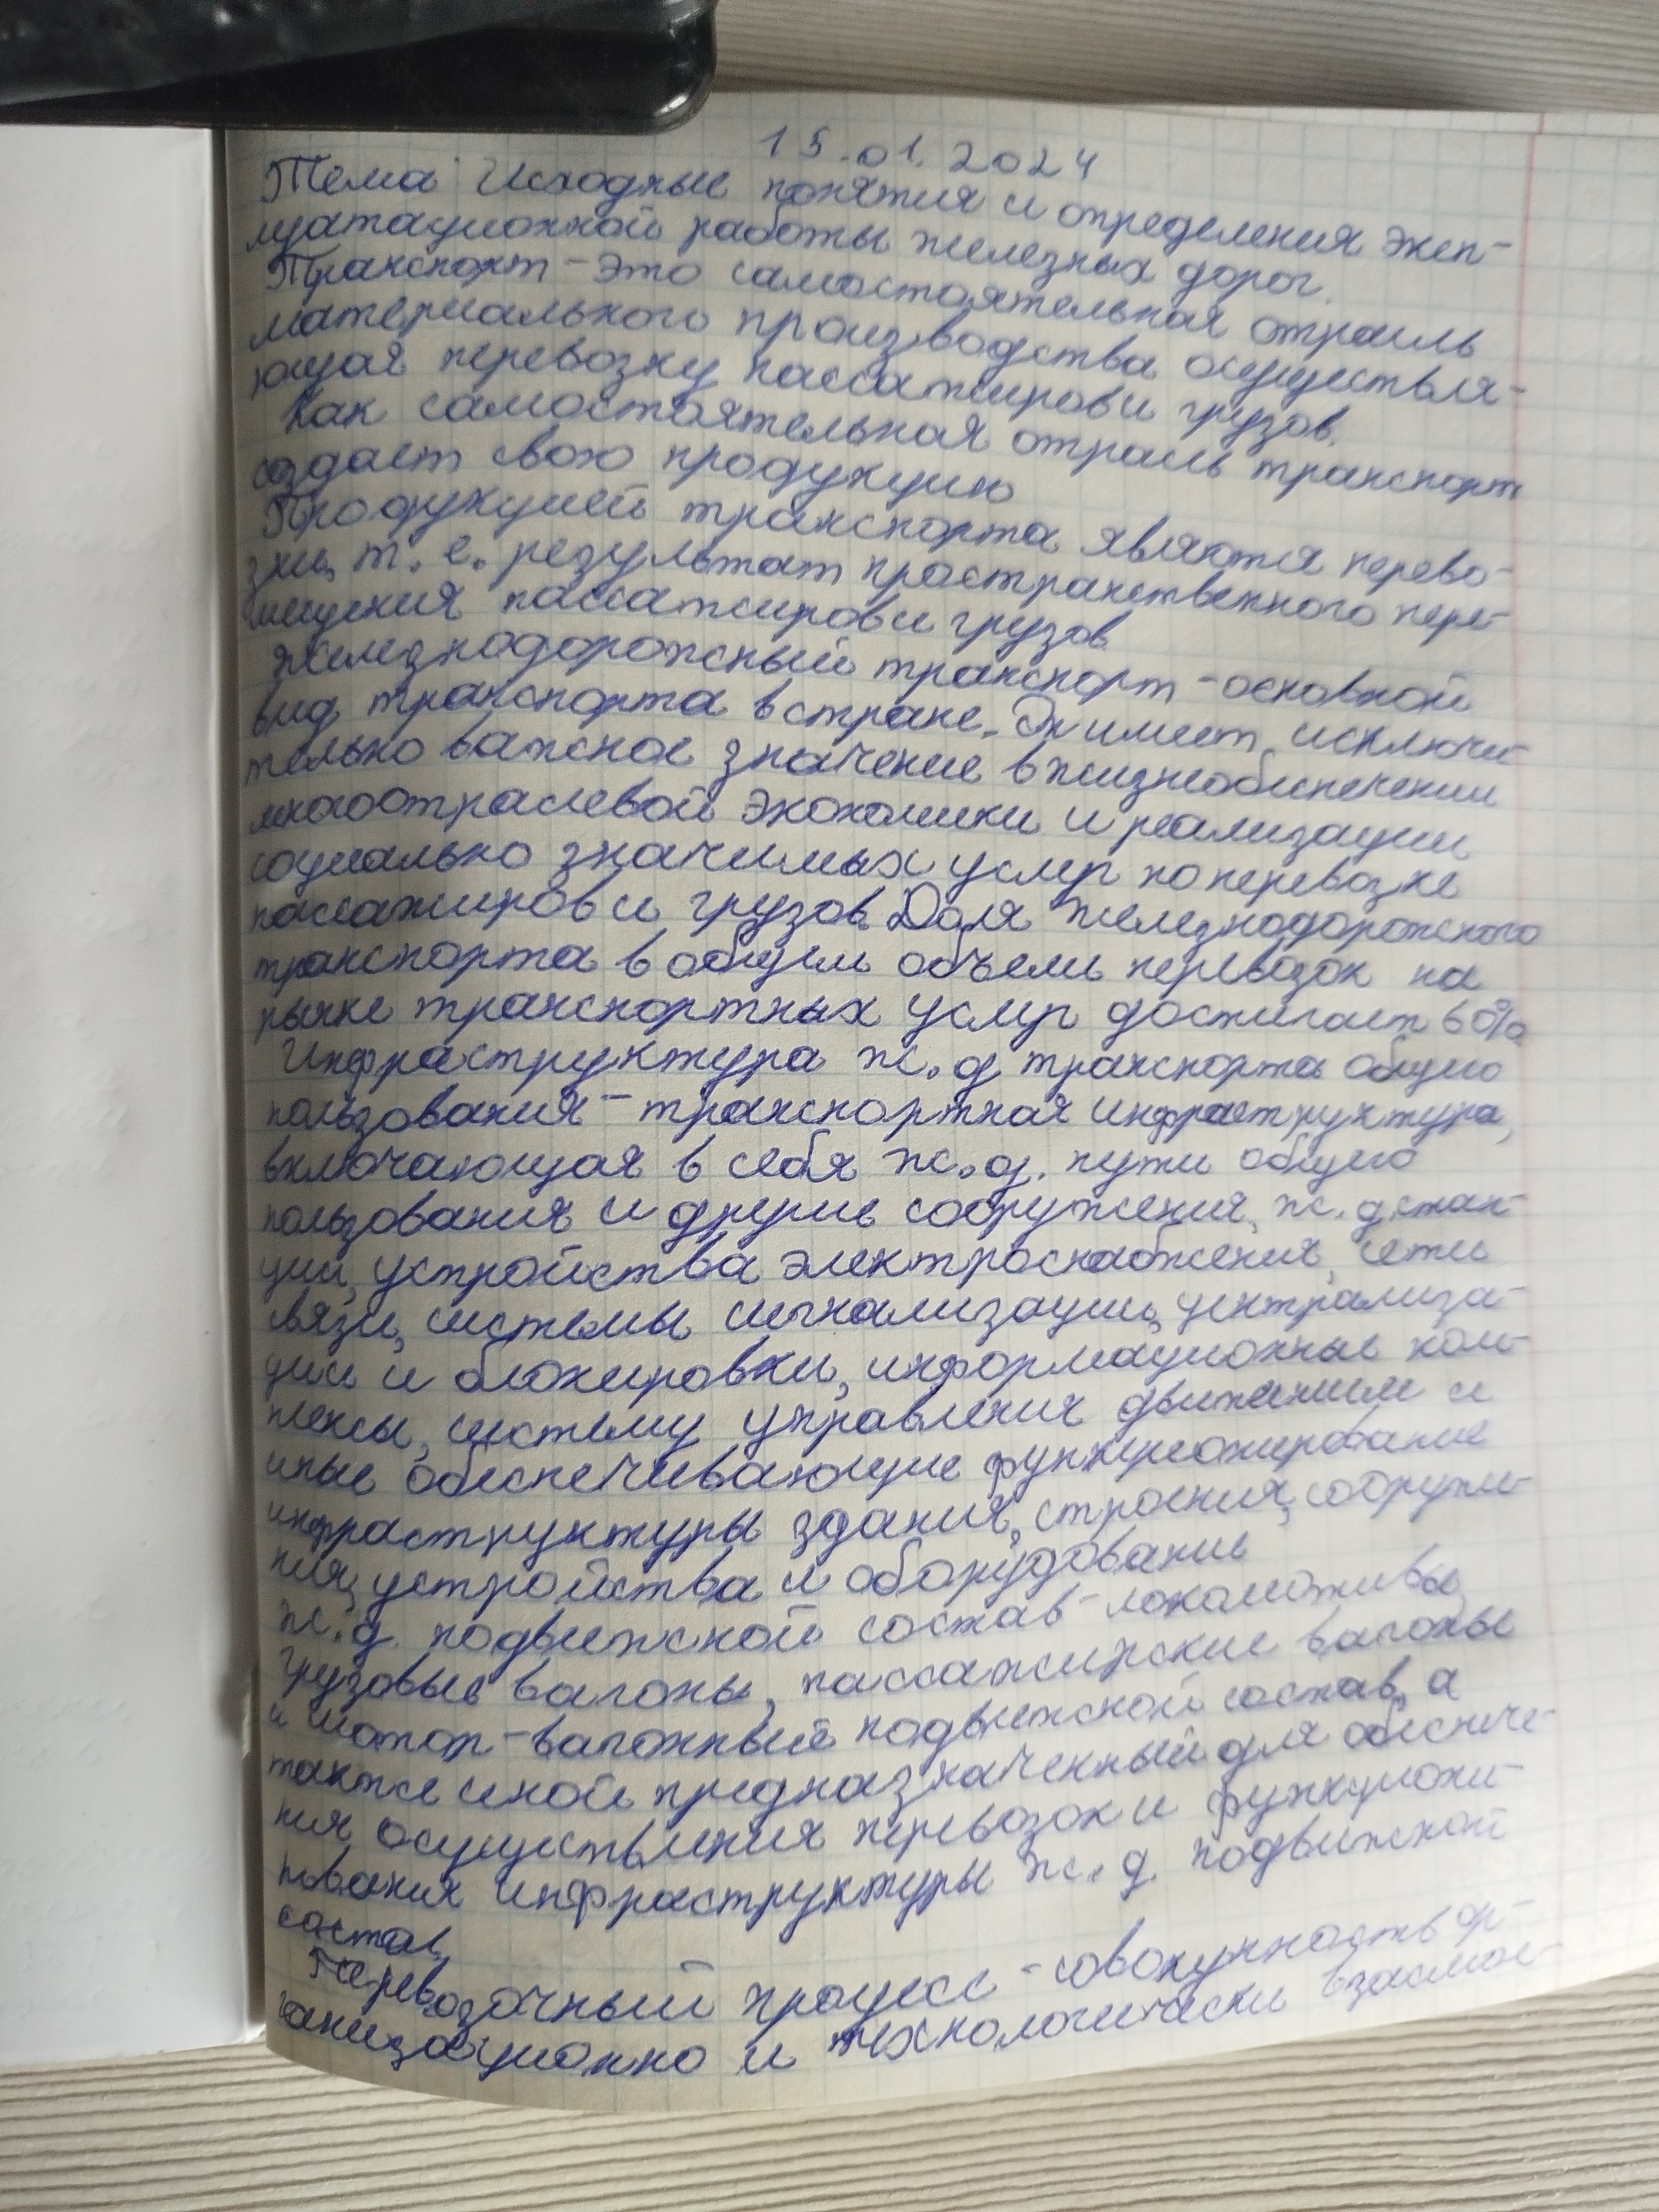 15.01.2024
Тема: Исходные понятия и определения эксп-
луатационной работы железных дорог.
Транспорт – это самостоятельная отрасль
материального производства осуществля-
ющая перевозку пассажиров и грузов.
Как самостоятельная отрасль транспорт
создает свою продукцию
Продукцией транспорта являются перево-
зки, т. е. результат пространственного пере-
мещения пассажиров и грузов
Железнодорожный транспорт – основной
вид транспорта в стране. Он имеет исключи-
тельно важное значение в жизнеобеспечении
многоотраслевой экономики и реализации
социально значимых услуг по перевозке
пассажиров и грузов. Доля железнодорожного
транспорта в общем объеме перевозок на
рынке транспортных услуг достигает 60%
Инфраструктура ж.д транспорта общего
пользования – транспортная инфраструктура,
включающая в себя ж.д. пути общего
пользования и другие сооружения, ж.д. стан-
ции, устройства электроснабжения, сети
связи, системы сигнализации, централиза-
ции и блокировки, информационные ком-
плексы, систему управления движением и
иные обеспечивающие функционирование
инфраструктуры здания, строения, сооруже-
ния, устройства и оборудование
ж.д. подвижной состав – локомотивы,
грузовые вагоны, пассажирские вагоны
и мотор-вагонный подвижной состав, а
также иной предназначенный для обеспече-
ния осуществления перевозок и функциони-
рования инфраструктуры ж.д. подвижной
состав
Перевозочный процесс – совокупность ор-
ганизационно и технологически взаимос-